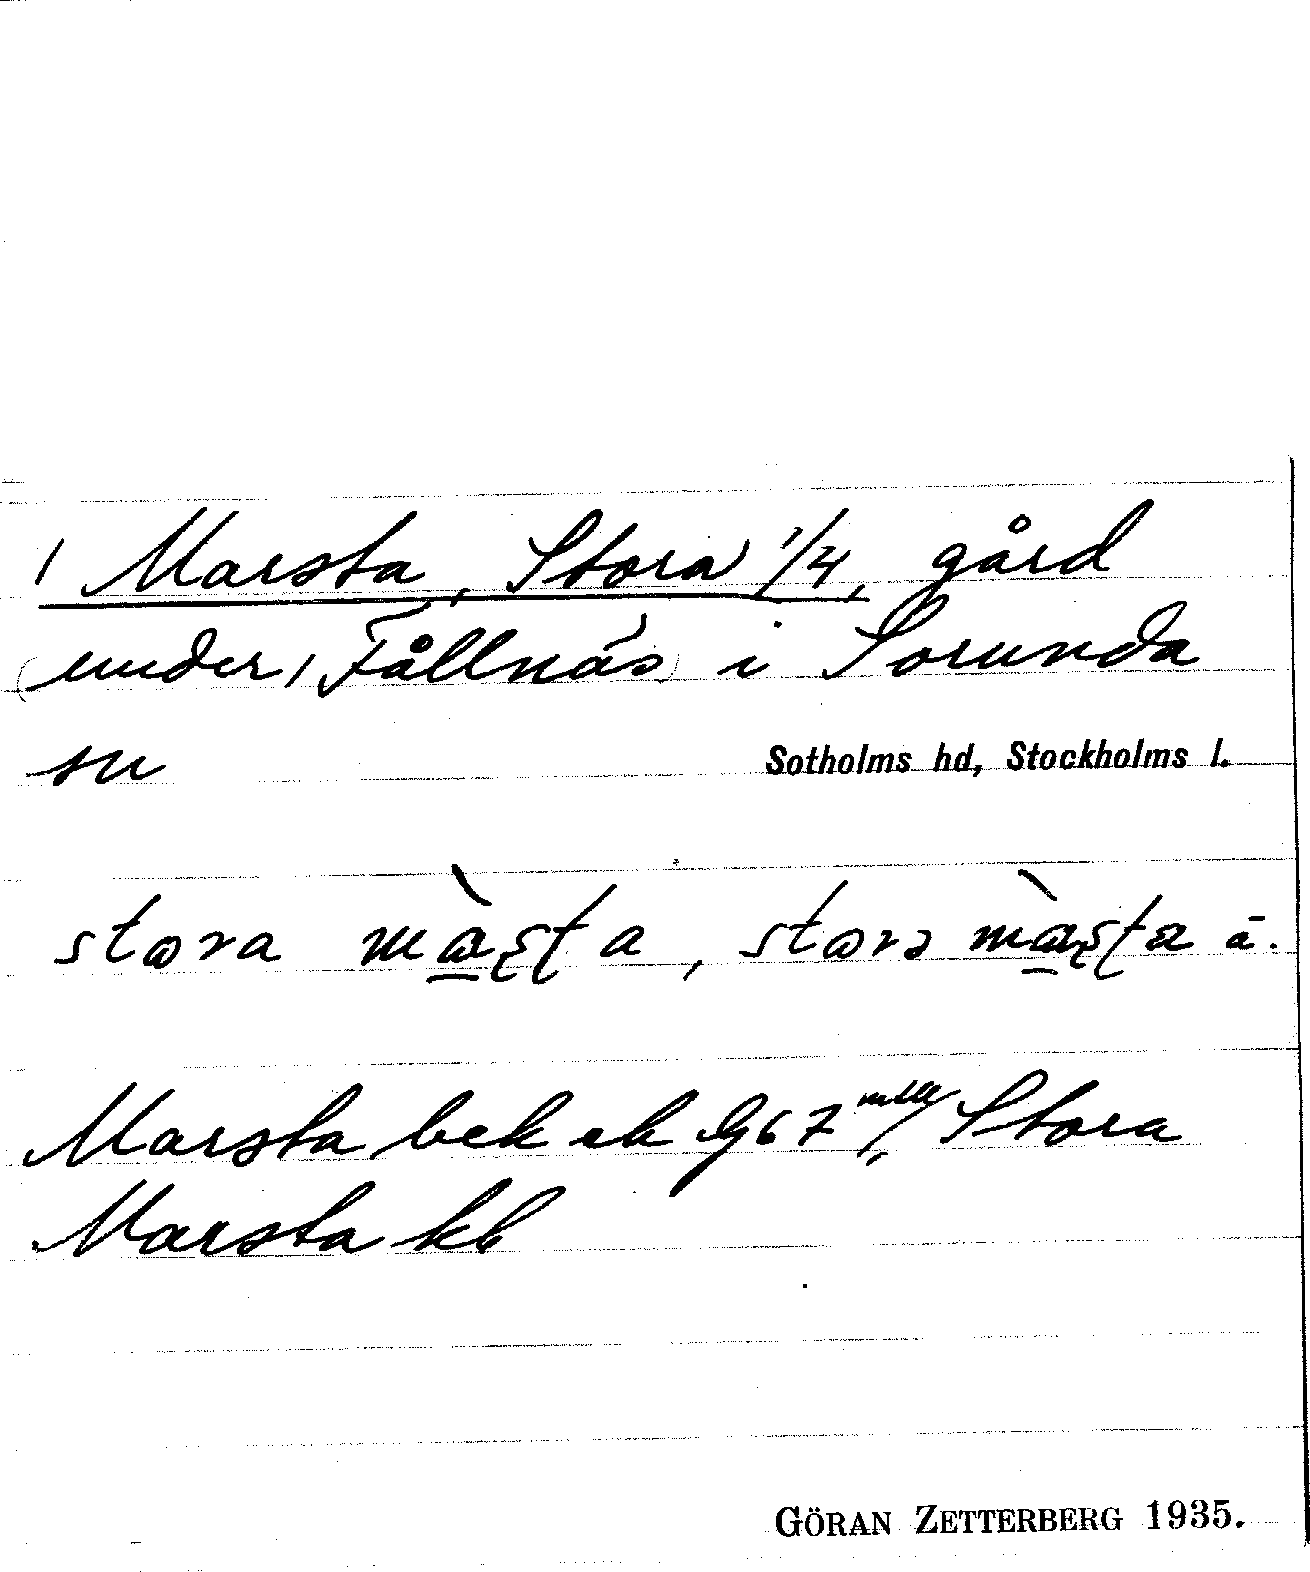 Marsta, Stora 1/4, gård
(under Fållnäs) i Sorunda
sn Sotholms hd, Stockholms l.
stora màʂʈa, storə màʂʈa ä.
Marsta bek ek Ig67 mtll, Stora
Marsta kb
GÖRAN ZETTERBERG 1935.